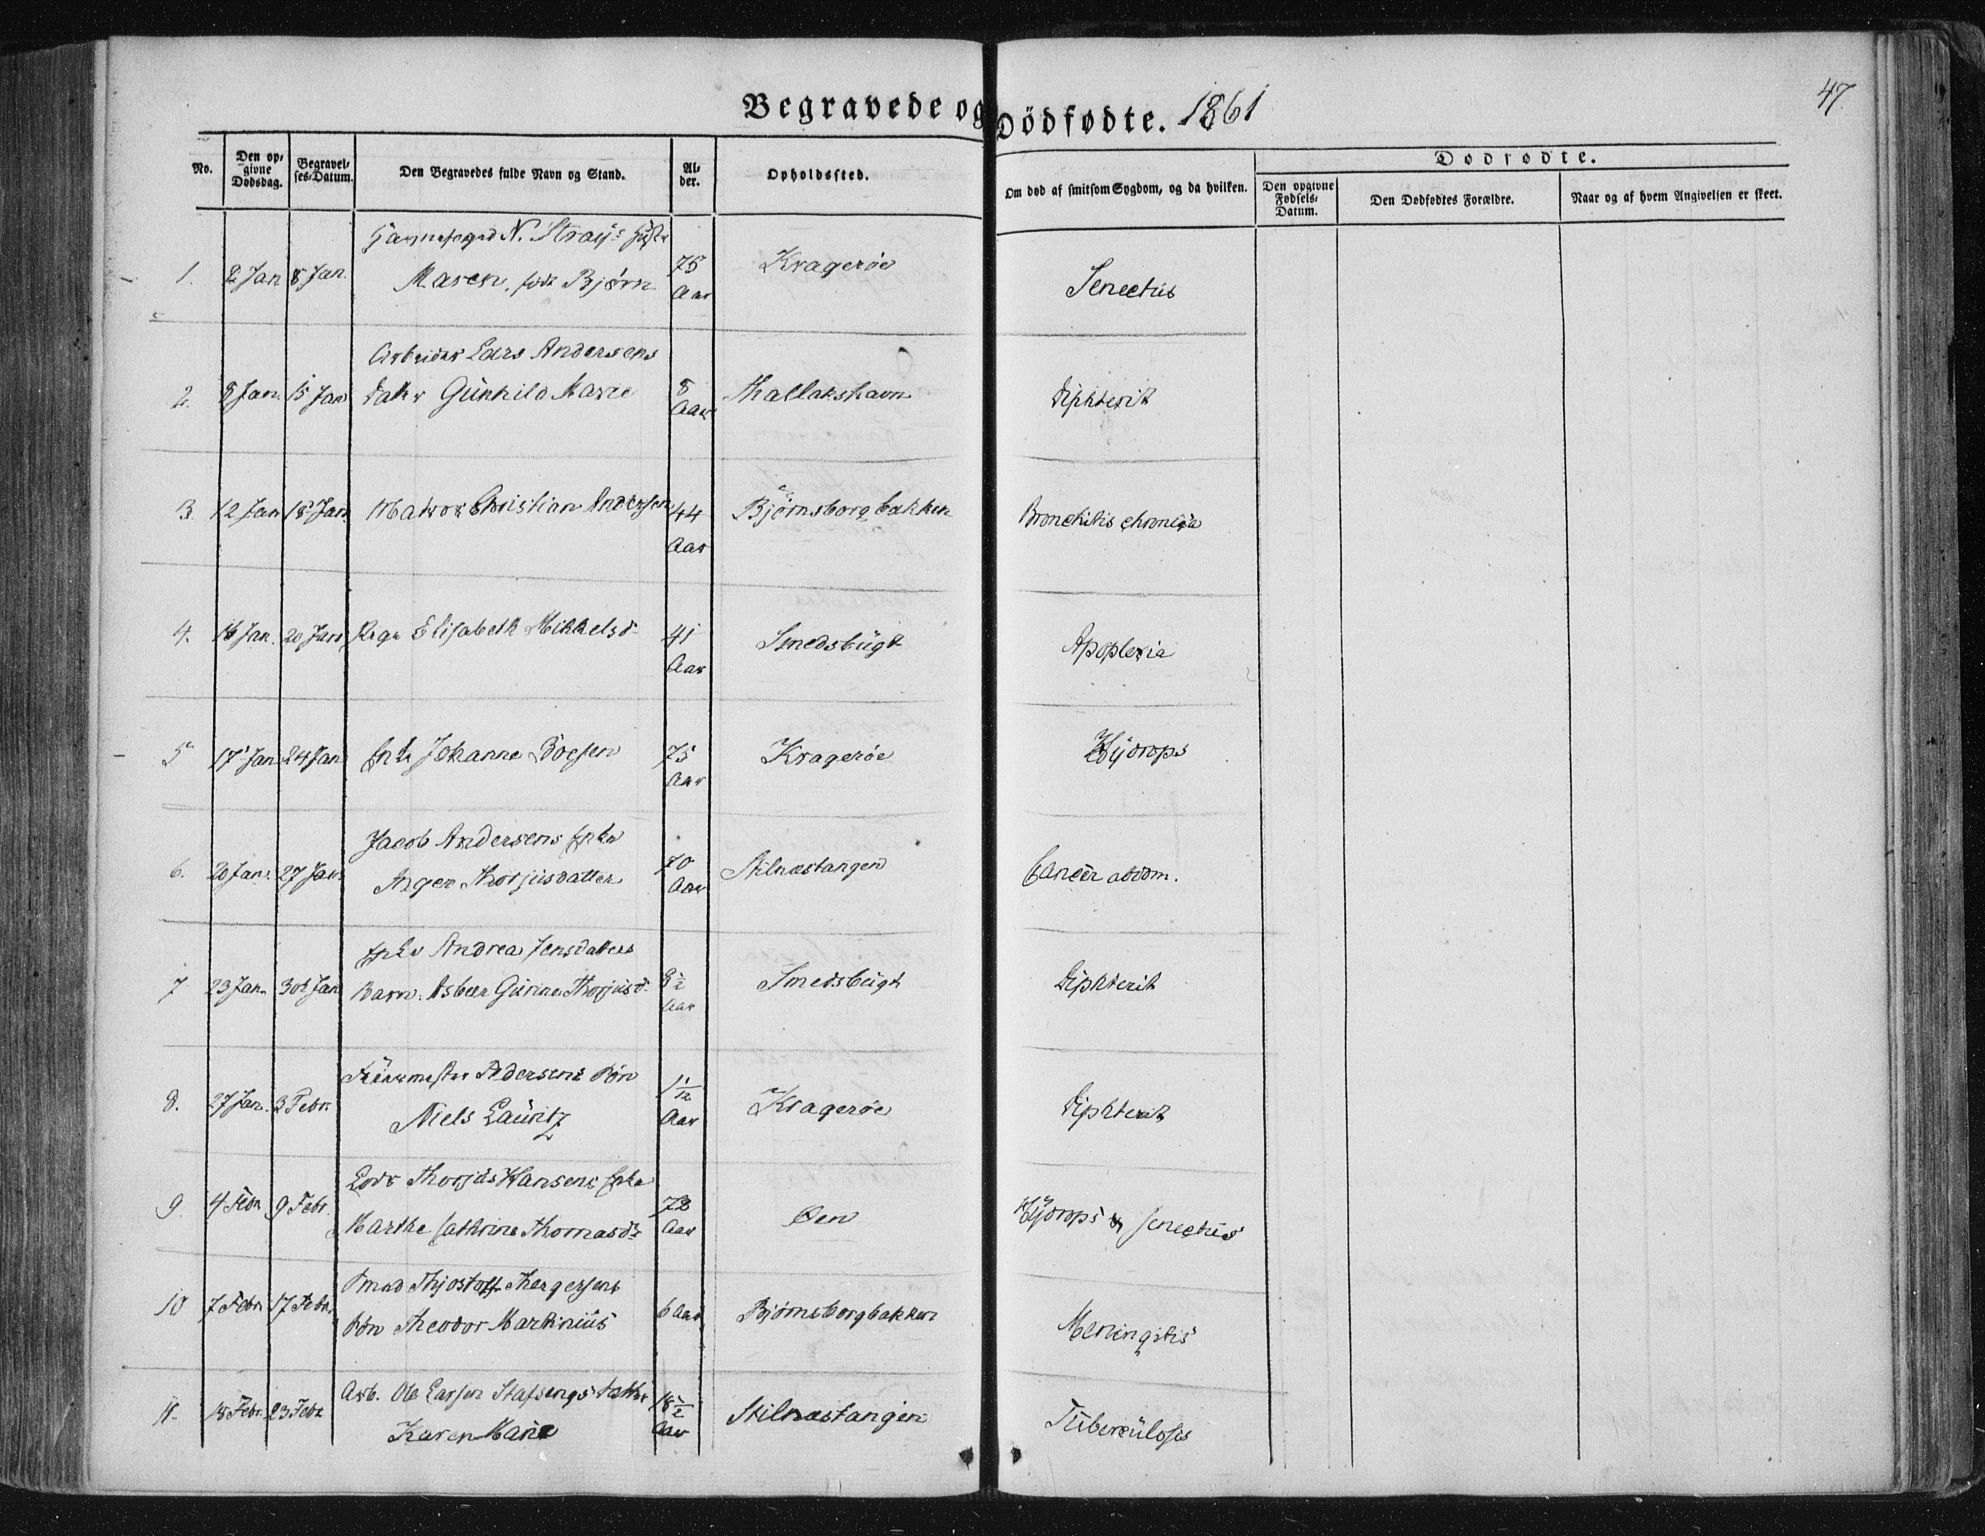 Begravede og Dödfødte. 1861
47
No.
Den opgivne Dødsdag.
Begravelses-Datum.
Den Begravedes fulde Navn og Stand.
Alder.
Opholdssted.
Om død af smitsom Sygdom, og da hvilken.
Dødfødte.
Den opgivne Fødsels-Datum.
Den Dødfødtes Forældre.
Naar og af hvem Angivelsen er skeet.
N. Strays
1. 2 Jan 8 Jan. Maren, født Bjørn 75 Aar Kragerøe Senectus
Arbeider Lars Andersens
2. 8 Jan. 15 Jan Datter Gunhild Marie 8 Aar Thallakshavn Diphterit
3. 12 Jan 18 Jan. Matros Christian Andersen 44 Aar Bjørnsborgbakken Bronchitis chronica
4. 16 Jan. 20 Jan Pige Elisabeth Mikkelsd. 41 Aar Smedsbugt Apoplexia
5 17 Jan 24 Jan Enke Johanne Boesen 75 Aar Kragerøe Hydrops
Jacob Andersens Enke
6. 20 Jan. 27 Jan. Inger Thorjusdatter 70 Aar Stilnæstangen Cancer abdom.
Enke Andrea Jensdatters
7 23 Jan. 30 Jan Barn Gurine Thorjusd. 8½ Aar Smedsbugt Diphterit
Pedersens Søn
8. 27 Jan. 3 Febr. Niels Lauritz 1 1/12 Aar Kragerøe Diphterit
Lods Thorjus Hansens Enke
9. 4 Febr 9 Febr. Marthe Cathrine Thomasdr 72 Aar Øen Hydrops & Senectus
Smed Thjostolf Thergersens
10 7 Febr. 17 Febr. Søn Theodor Martinius 6 Aar Bjørnsborgbakken Meningitis
Arb. Ole Larsen Stafsengs Datter
11. 18 Febr. 23 Febr Karen Marie 18½ Aar Stilnæstangen Tuberculosis